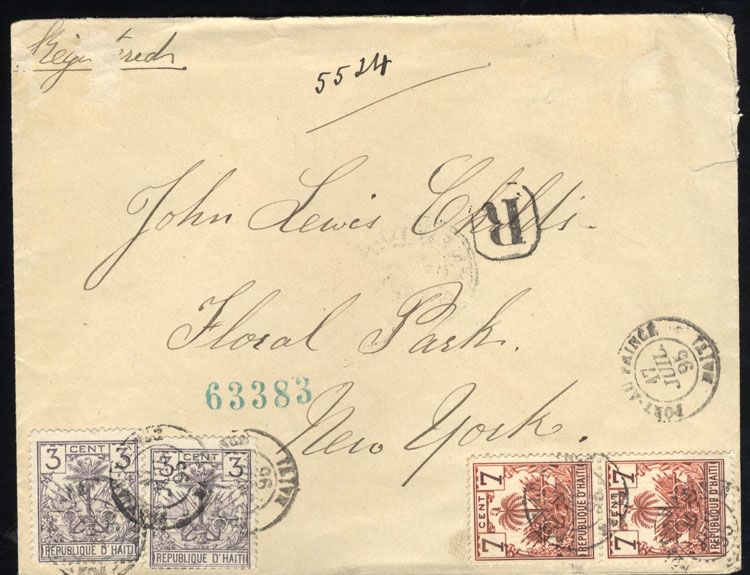 Registered
5524
John Lewis Childs.
R
Floral Park.
PORT-AU-PRINCE HAITI
17
JUIL
95
63383
New York.
3 CENT 3
REPUBLIQUE D'HAITI
3 CENT 3
REPUBLIQUE D'HAITI
7 CENT 7
REPUBLIQUE D'HAITI
7 CENT 7
REPUBLIQUE D'HAITI